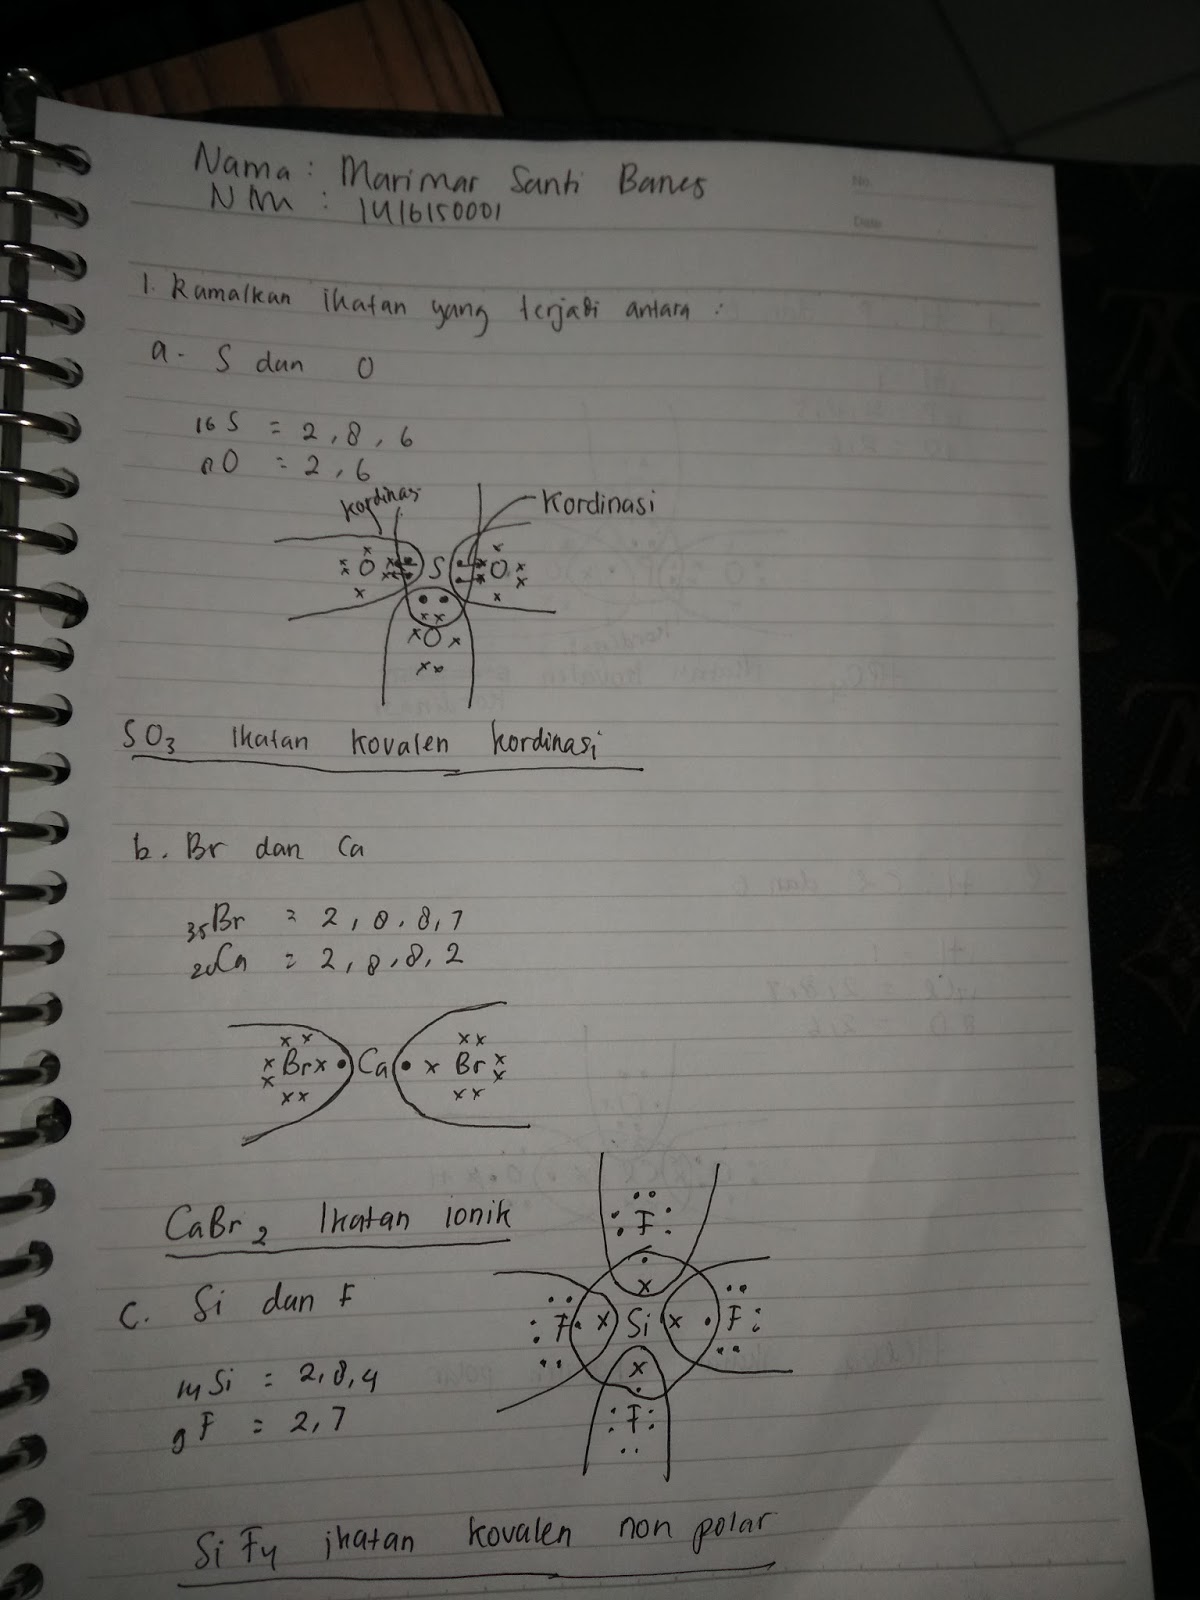 No.
Date
Nama : Marimar Santi Banes
NIM : 1416150001
1. Ramalkan ikatan yang terjadi antara :
a. S dan O
16 S = 2, 8, 6
8 O = 2, 6
kordinasi
Kordinasi
O S O
O
SO3 Ikatan kovalen kordinasi
b. Br dan Ca
35Br = 2, 8, 8, 7
20Ca = 2, 8, 8, 2
Br Ca Br
CaBr2 Ikatan ionik
F
C. Si dan F
F Si F
14 Si = 2, 8, 4
9 F = 2, 7
F
SiF4 ikatan kovalen non polar